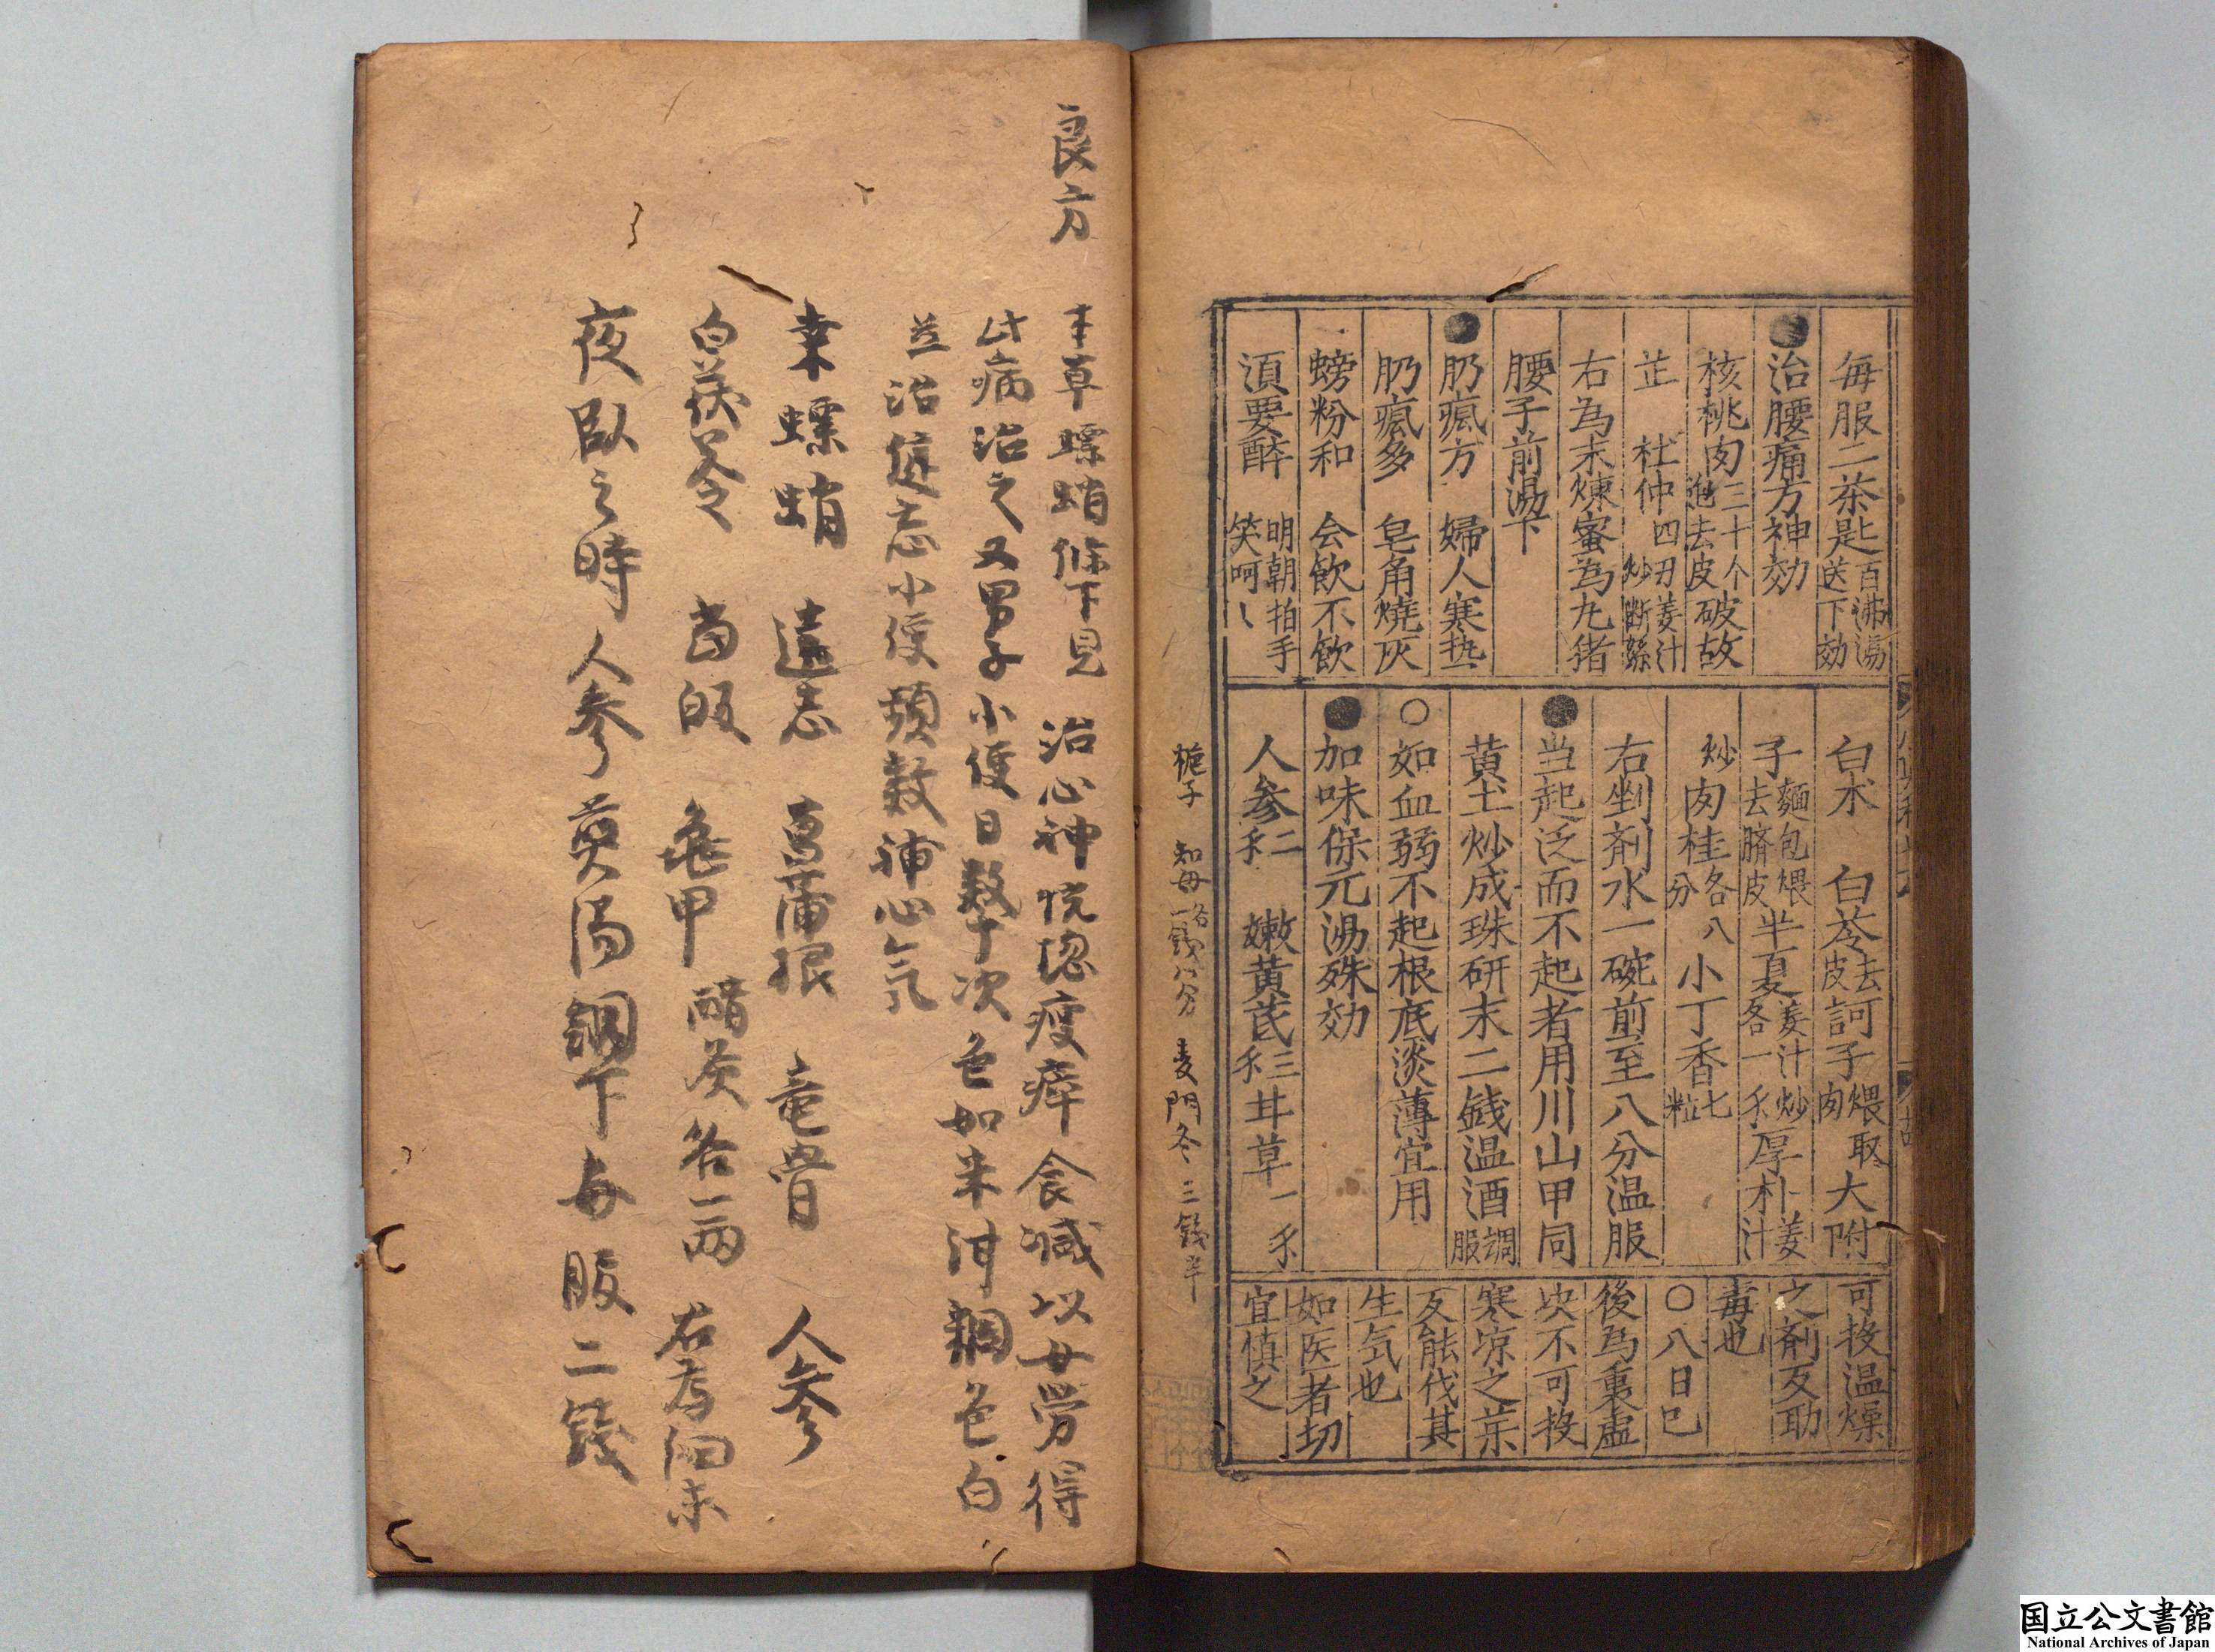 毎服二茶匙百沸湯送下効
治腰痛方神効
核桃肉三十个炮去皮破故
芷 杜仲四刃姜汁炒断絲
右為末煉蜜為九猪
腰子前湯下
肭瘋方 婦人寒热
肭瘋多 皂角燒灰
螃粉和 会飲不飲
湏要醉 明朝拍手笑呵〻
白朮 白苓去皮訶子煨取肉大附
子麵包煨去臍皮半夏姜汁炒各一禾厚朴姜汁
炒肉桂各八分小丁香七粒
右剉剤水一碗煎至八分温服
当起泛而不起者用川山甲同
黄土炒成珠研末二錢温酒調服
○如血弱不起根底淡薄宜用
加味保元湯殊効
人参二禾 嫩黄芪三禾甘草一禾
可投温燥
之剤反助
毒也
○八日已
後為裏虚
炏不可投
寒凉之茱
反能伐其
生気也
如医者切
宜慎之
梔子 知母各一錢八分 麦門冬三錢半
良方 本草螵蛸條下見 治心神恍惚瘦瘁食減以女労得
此病治之又男子小便日数十次色如米泔稠色白
並治健忘小便頻数補心気
桒螵蛸 遠志 菖蒲根 竜骨 人參
白茯苓 当皈 龜甲醋炙各一両 右為細末
夜臥之時人參煎湯調下每服二錢
国立公文書館
National Archives of Japan